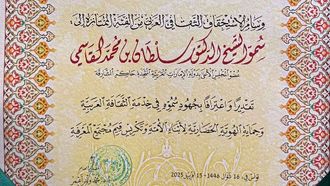 وسام الاستحقاق الثقافي العربي من الفئة الممتازة إلى،
سمو الشيخ الدكتور سلطان بن محمد القاسمي
عضو المجلس الأعلى بدولة الإمارات العربية المتحدة حاكم الشارقة
تقديرا واعترافا بجهود سموه في خدمة الثقافة العربية
وحماية الهوية الحضارية لأبناء الأمة وتكريس قيم مجتمع المعرفة
تونس في، 16 شوال 1446هـ - 15 أفريل 2025